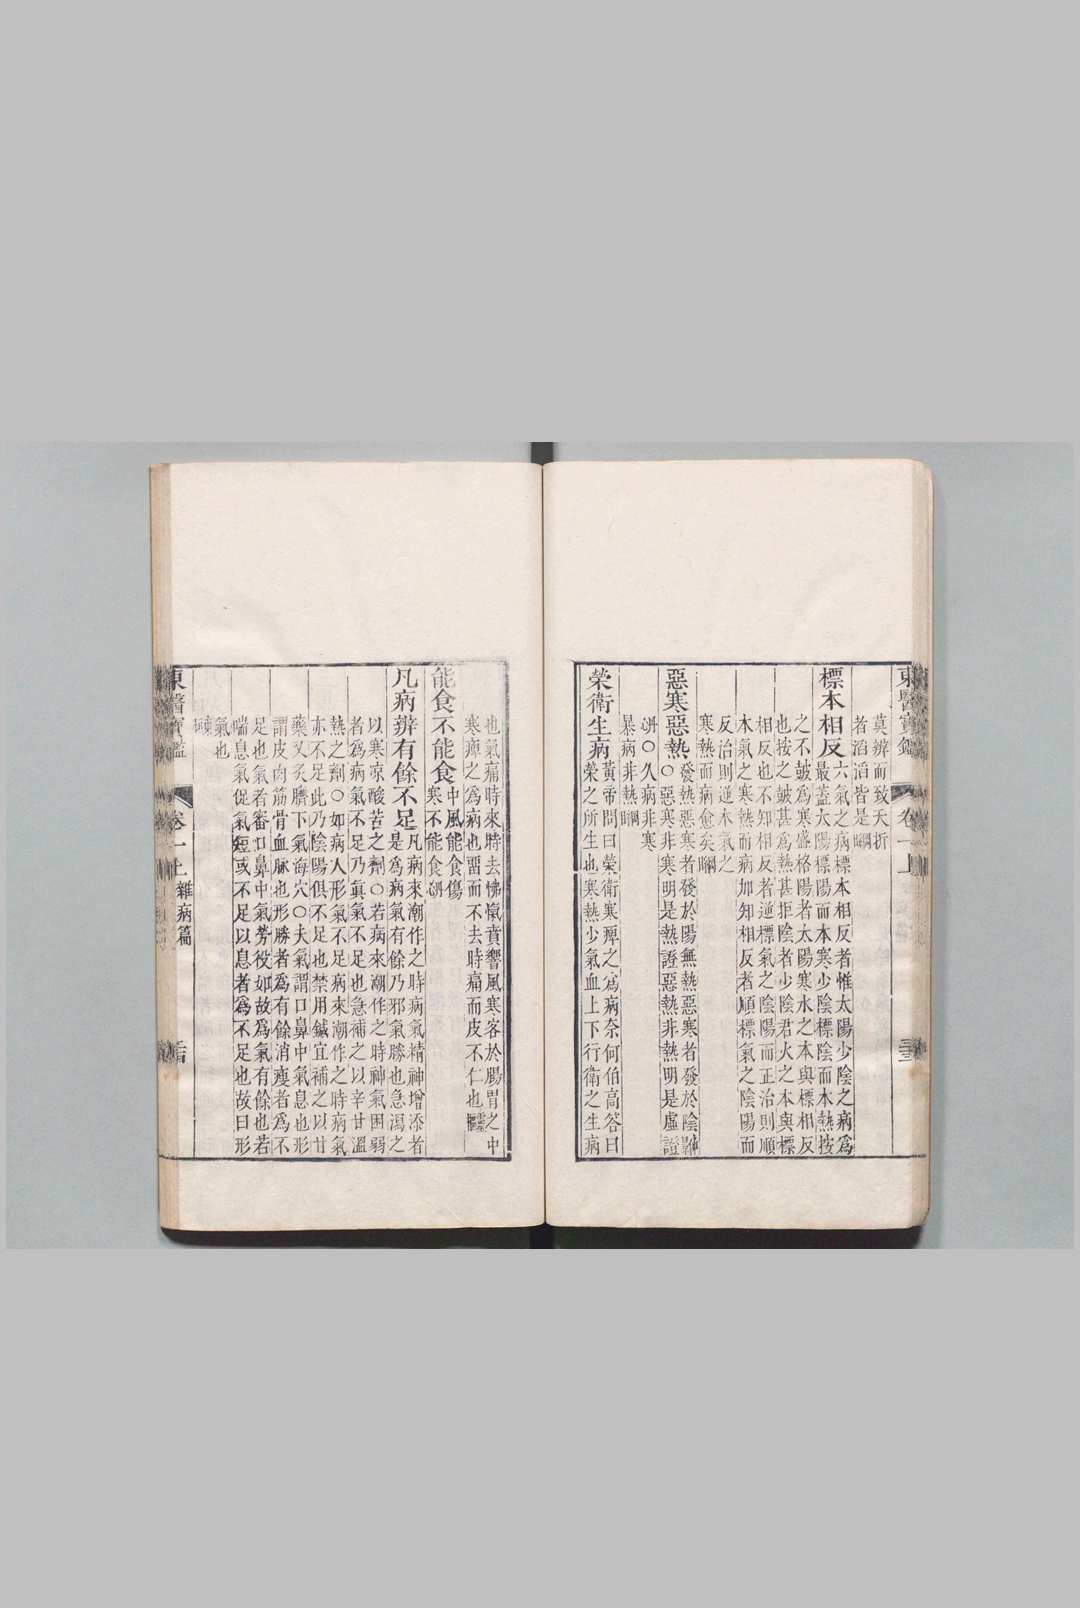 東醫寶鑑 卷一上 三十三
莫辨而致夭折
者滔滔皆是綱
標本相反六氣之病標本相反者惟太陽少陰之病爲
最蓋太陽標陽而本寒少陰標陰而本熱按
之不皷爲寒盛格陽者太陽寒水之本與標相反
也按之皷甚爲熱甚拒陰者少陰君火之本與標
相反也不知相反者逆標氣之陰陽而正治則順
本氣之寒熱而病加知相反者順標氣之陰陽而
反治則逆本氣之
寒熱而病愈矣綱
惡寒惡熱發熱惡寒者發於陽無熱惡寒者發於陰難
○惡寒非寒明是熱證惡熱非熱明是虛證
硏○久病非寒
暴病非熱綱
榮衛生病黃帝問曰榮衛寒痺之爲病奈何伯高答曰
榮之所生也寒熱少氣血上下行衛之生病
也氣痛時來時去怫愾賁響風寒客於腸胃之中
寒痺之爲病也畱而不去時痛而皮不仁也靈樞
能食不能食中風能食傷
寒不能食硏
凡病辨有餘不足凡病來潮作之時病氣精神增添者
是爲病氣有餘乃邪氣勝也急瀉之
以寒凉酸苦之劑○若病來潮作之時神氣困弱
者爲病氣不足乃眞氣不足也急補之以辛甘溫
熱之劑○如病人形氣不足病來潮作之時病氣
亦不足此乃陰陽俱不足也禁用鍼宜補之以甘
藥又灸臍下氣海穴○夫氣謂口鼻中氣息也形
謂皮肉筋骨血脉也形勝者爲有餘消瘦者爲不
足也氣者審口鼻中氣勞役如故爲氣有餘也若
喘息氣促氣短或不足以息者爲不足也故曰形
氣也
東垣
東醫寶鑑 卷一上 雜病篇 三十四